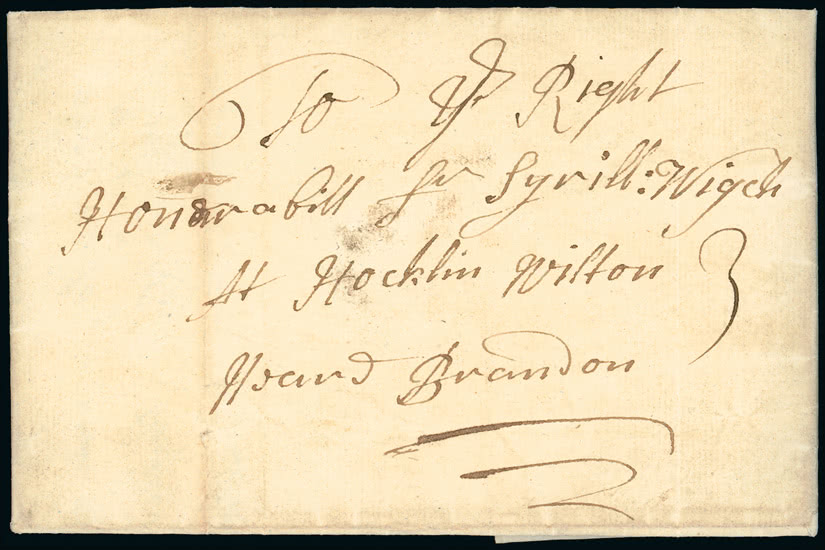 To yr Right
Honarabill Sr Syrill: Wigch
At Hocklin Wilton 3
Neard Brandon